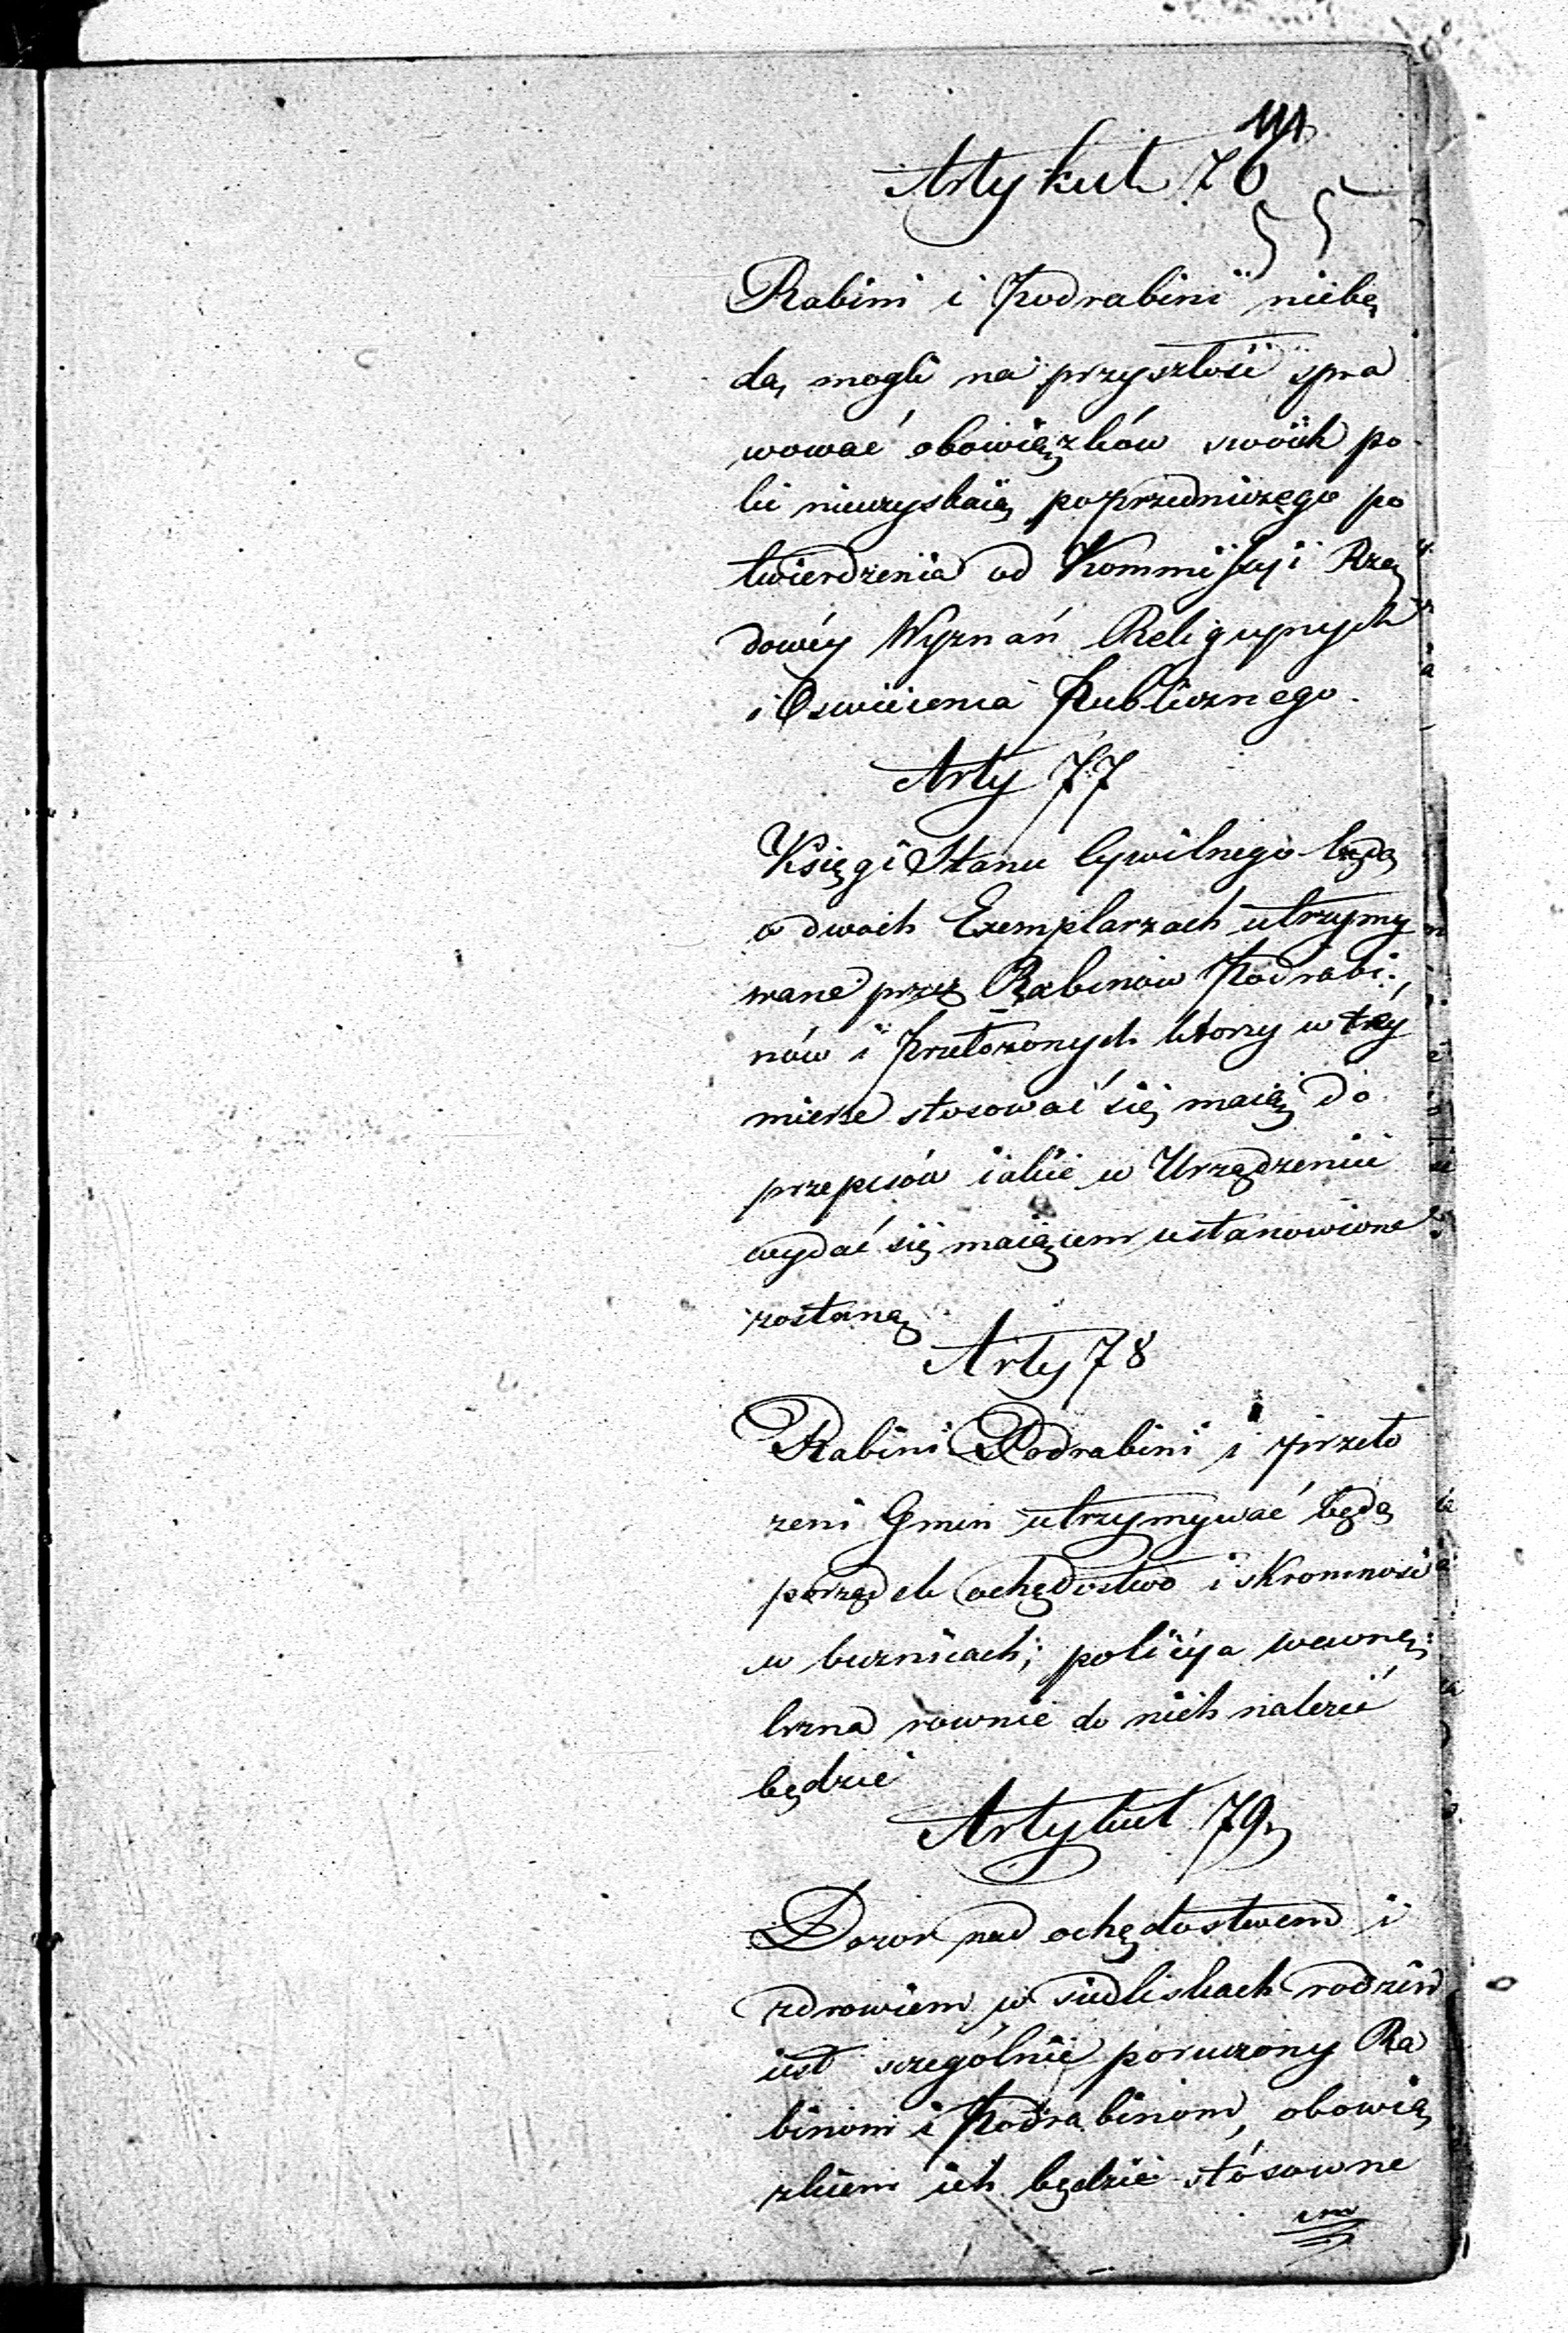 111
Artykuł 76
55
Rabini i Podrabini niebę
dą mogli na przyszłość spra
wować obowiązków swoich po
ki nieuzyskaią poprzedniczego po
twierdzenia od Kommissyi Rzą
dowéy Wyznań Religiynych
i Oswiecenia Publicznego.
Arty 77
Księgi Stanu Cywilnego będą
w dwoch Exemplarzach utrzymy
wane przez Rabinów Podrabi-
nów i Przełożonych ktorzy w téy
mierze stosować się maią do
przepisów iakie w Urządzeniu
wydać się maiącem ustanowione
zostaną
Arty 78
Rabini Podrabini i przeło
żeni Gmin utrzymywać będą
porządek ochędostwo i skromność
w buznicach; policya wewnę-
trzna rownie do nich należeć
będzie
Artykuł 79
Dozor nad ochędostwem i
zdrowiem w siedliskach rodzin
iest szczególnie poruczony Ra
binom i Podrabinom, obowią
zkiem ich będzie stósowne